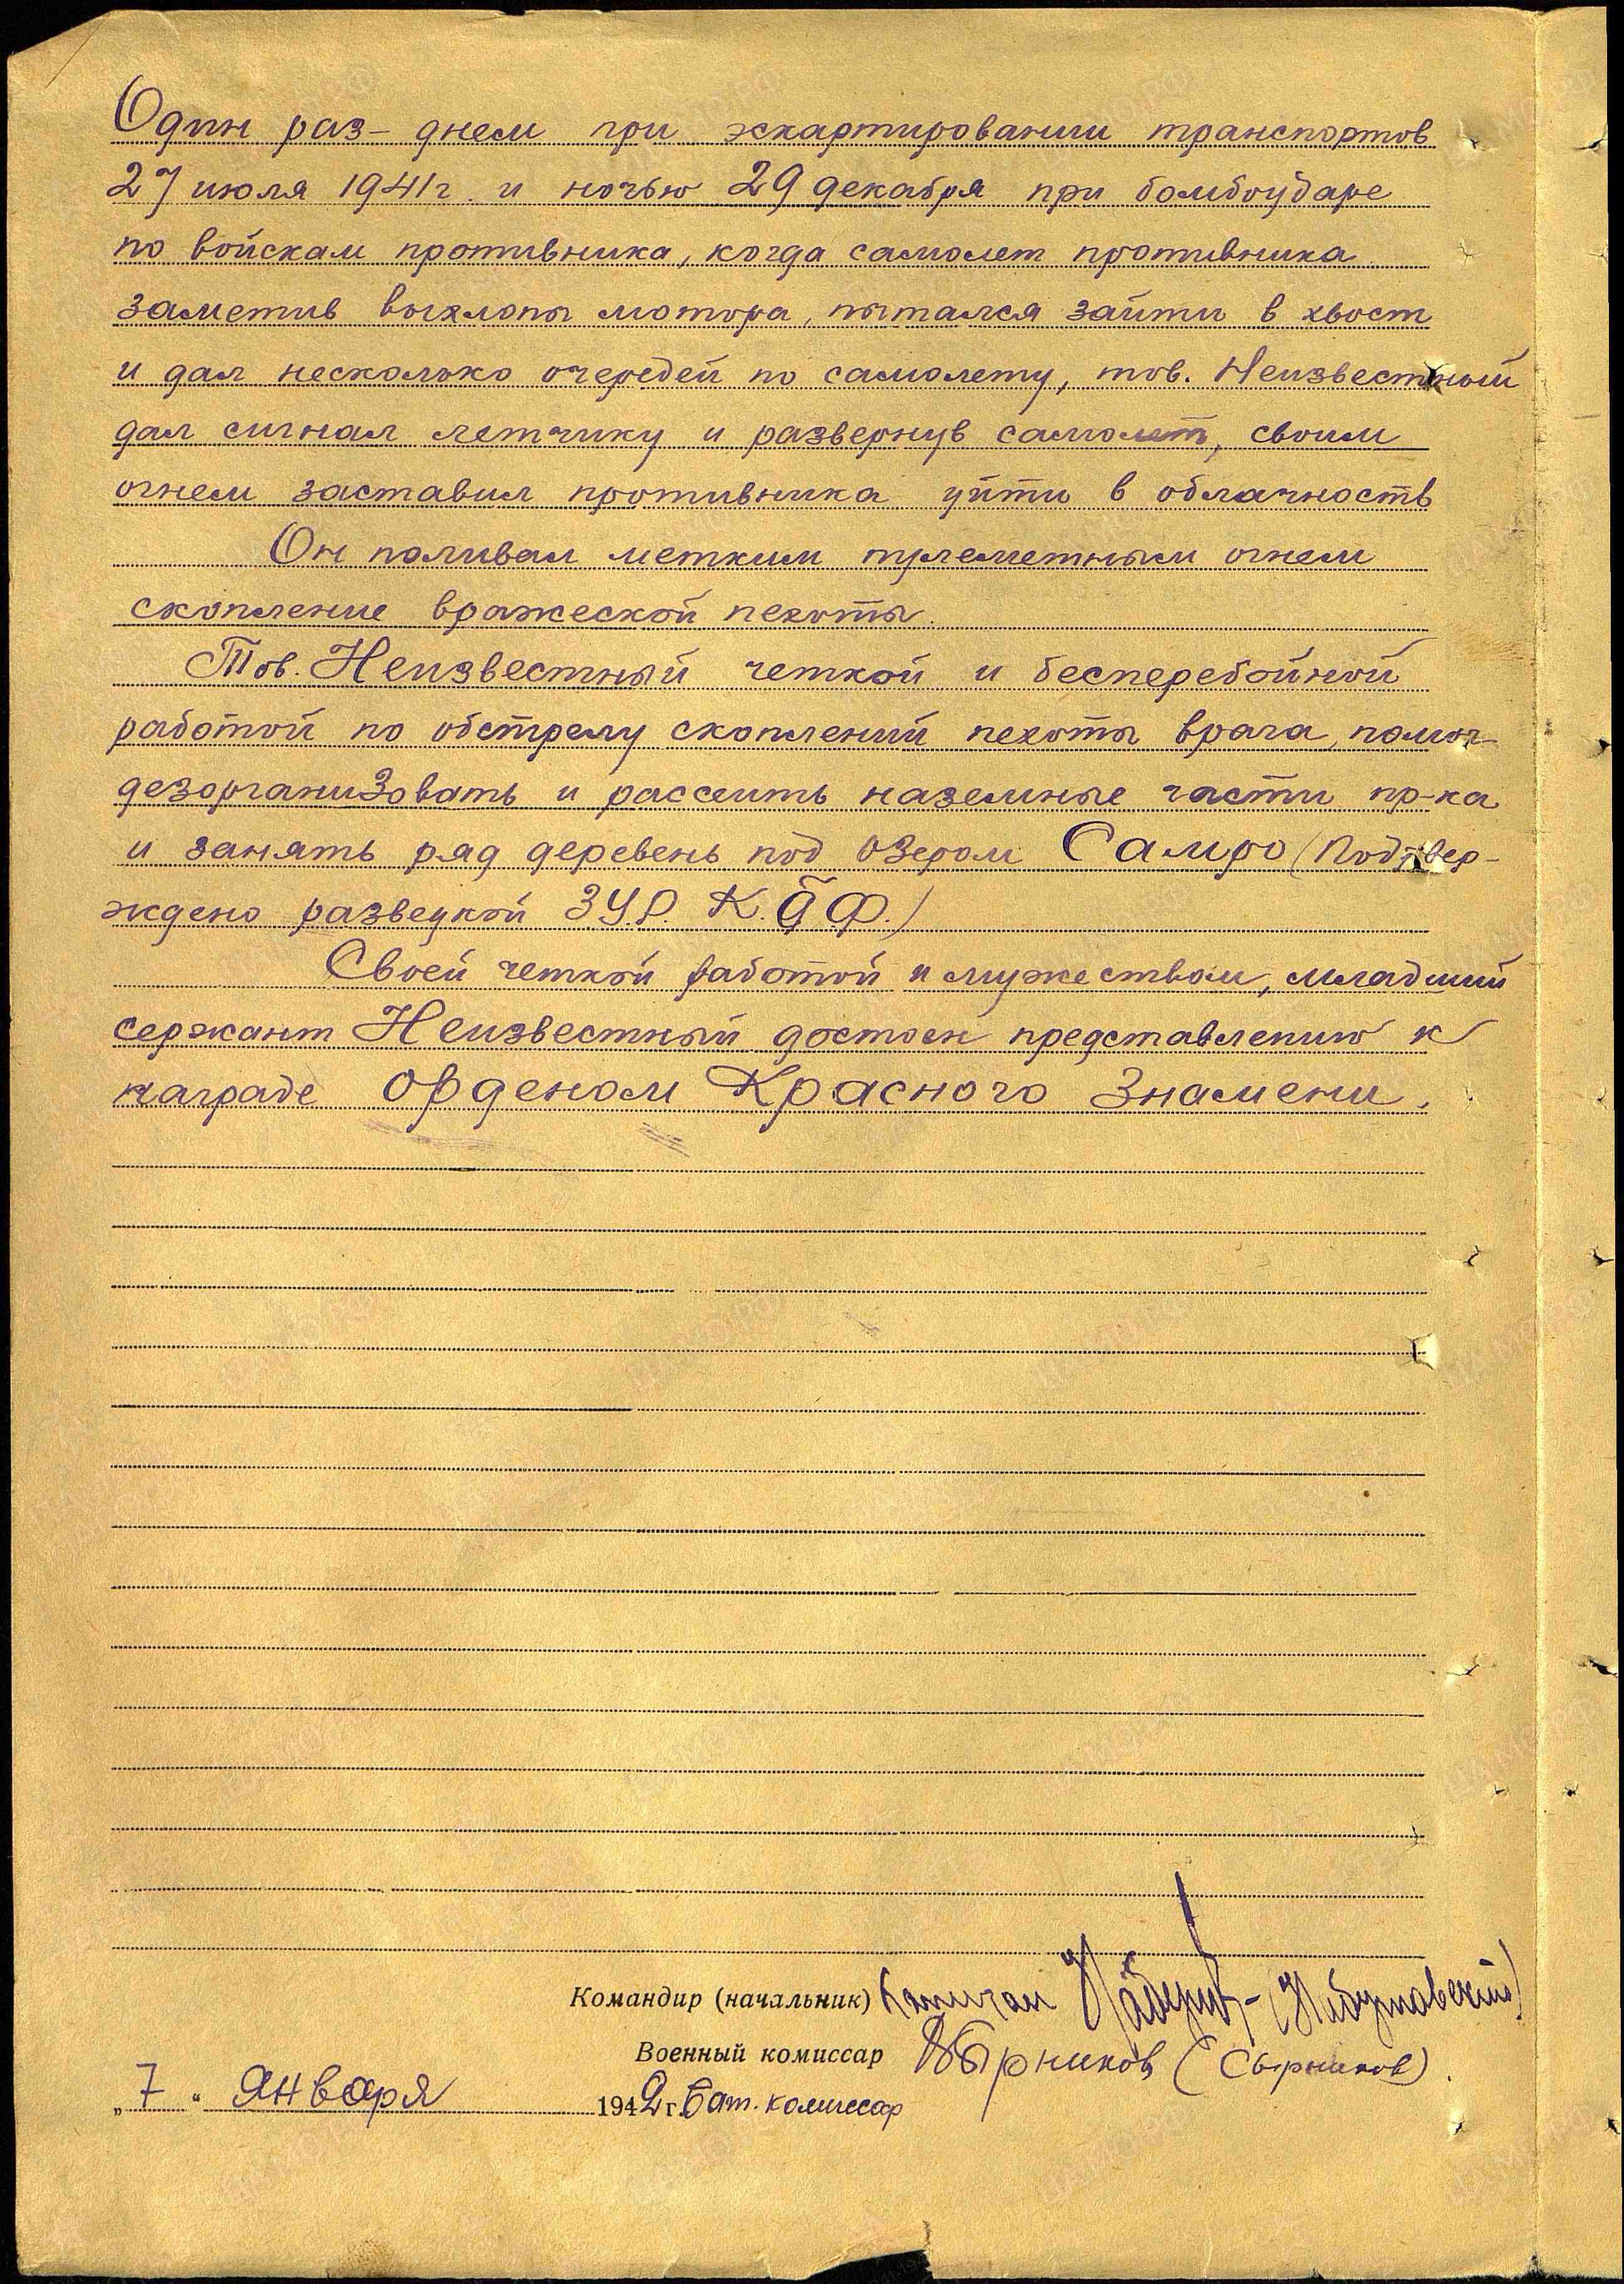 Один раз - днем при эскартировании транспортов
27 июля 1941 г. и ночью 29 декабря при бомбоударе
по войскам противника, когда самолет противника
заметив выхлопы мотора, пытался зайти в хвост
и дал несколько очередей по самолету, тов. Неизвестный
дал сигнал летчику и развернув самолет, своим
огнем заставил противника уйти в облачность
Он поливал метким пулеметным огнем
скопление вражеской пехоты.
Тов. Неизвестный четкой и бесперебойной
работой по обстрелу скоплений пехоты врага, помог
дезорганизовать и рассеить наземные части пр-ка
и занять ряд деревень под озером Самро (Подтвер-
ждено разведкой ЗУ.Р. К.б Ф.)
Своей четкой работой и мужеством, младший
сержант Неизвестный достоен представлению к
награде орденом Красного Знамени.
Командир (начальник) Капитан
Военный комиссар Сырников (Сырников).
„7“ января 1942 г. Бат. комиссар